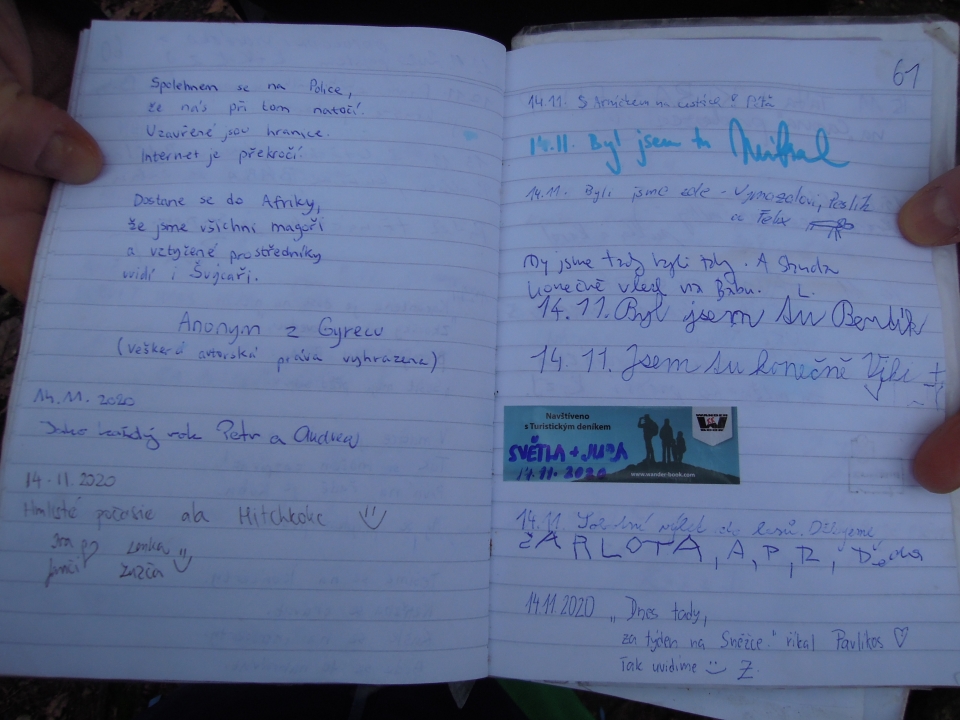 Spolehnem se na Police,
že nás při tom natočí.
Uzavřené jsou hranice.
Internet je překročí.
Dostane se do Afriky,
že jsme všichni magoři
a vztyčené prostředníky
uvidí i Švýcaři.
Anonym z Gyrecu
(veškerá autorská práva vyhrazena)
14.11.2020
Jako každý rok Petr a Andrea
14.11.2020
Hmlisté počasie ala Hitchkokc
Lenka
Zuzča
61
14.11. S
14.11. Byl jsem tu
14.11. Byli jsme zde - Vymazalovi,
a Felix
My jsme tady byli taky. A
konečně vlezl na Bábu. L.
14.11. Byl jsem tu Bendik
14.11. Jsem tu konečně Viki
Navštíveno
s Turistickým deníkem
SVĚTLA + JUDA
14.11.2020
WANDER BOOK
www.wander-book.com
14.11. výlet do lesů. Děkujeme
ŽARLOTA, A, P, R, Děda
14.11 2020 „Dnes tady,
za týden na Sněžce." říkal Pavlikos
Tak uvidíme Z.